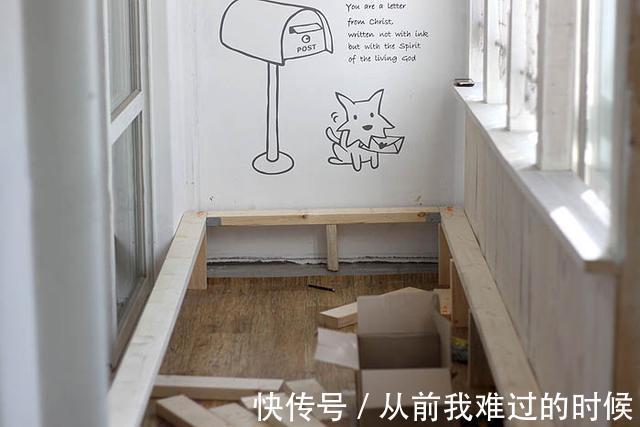 You are a letter
from Christ,
written not with ink
but with the Spirit
of the living God
POST
快传号 / 从前我难过的时候